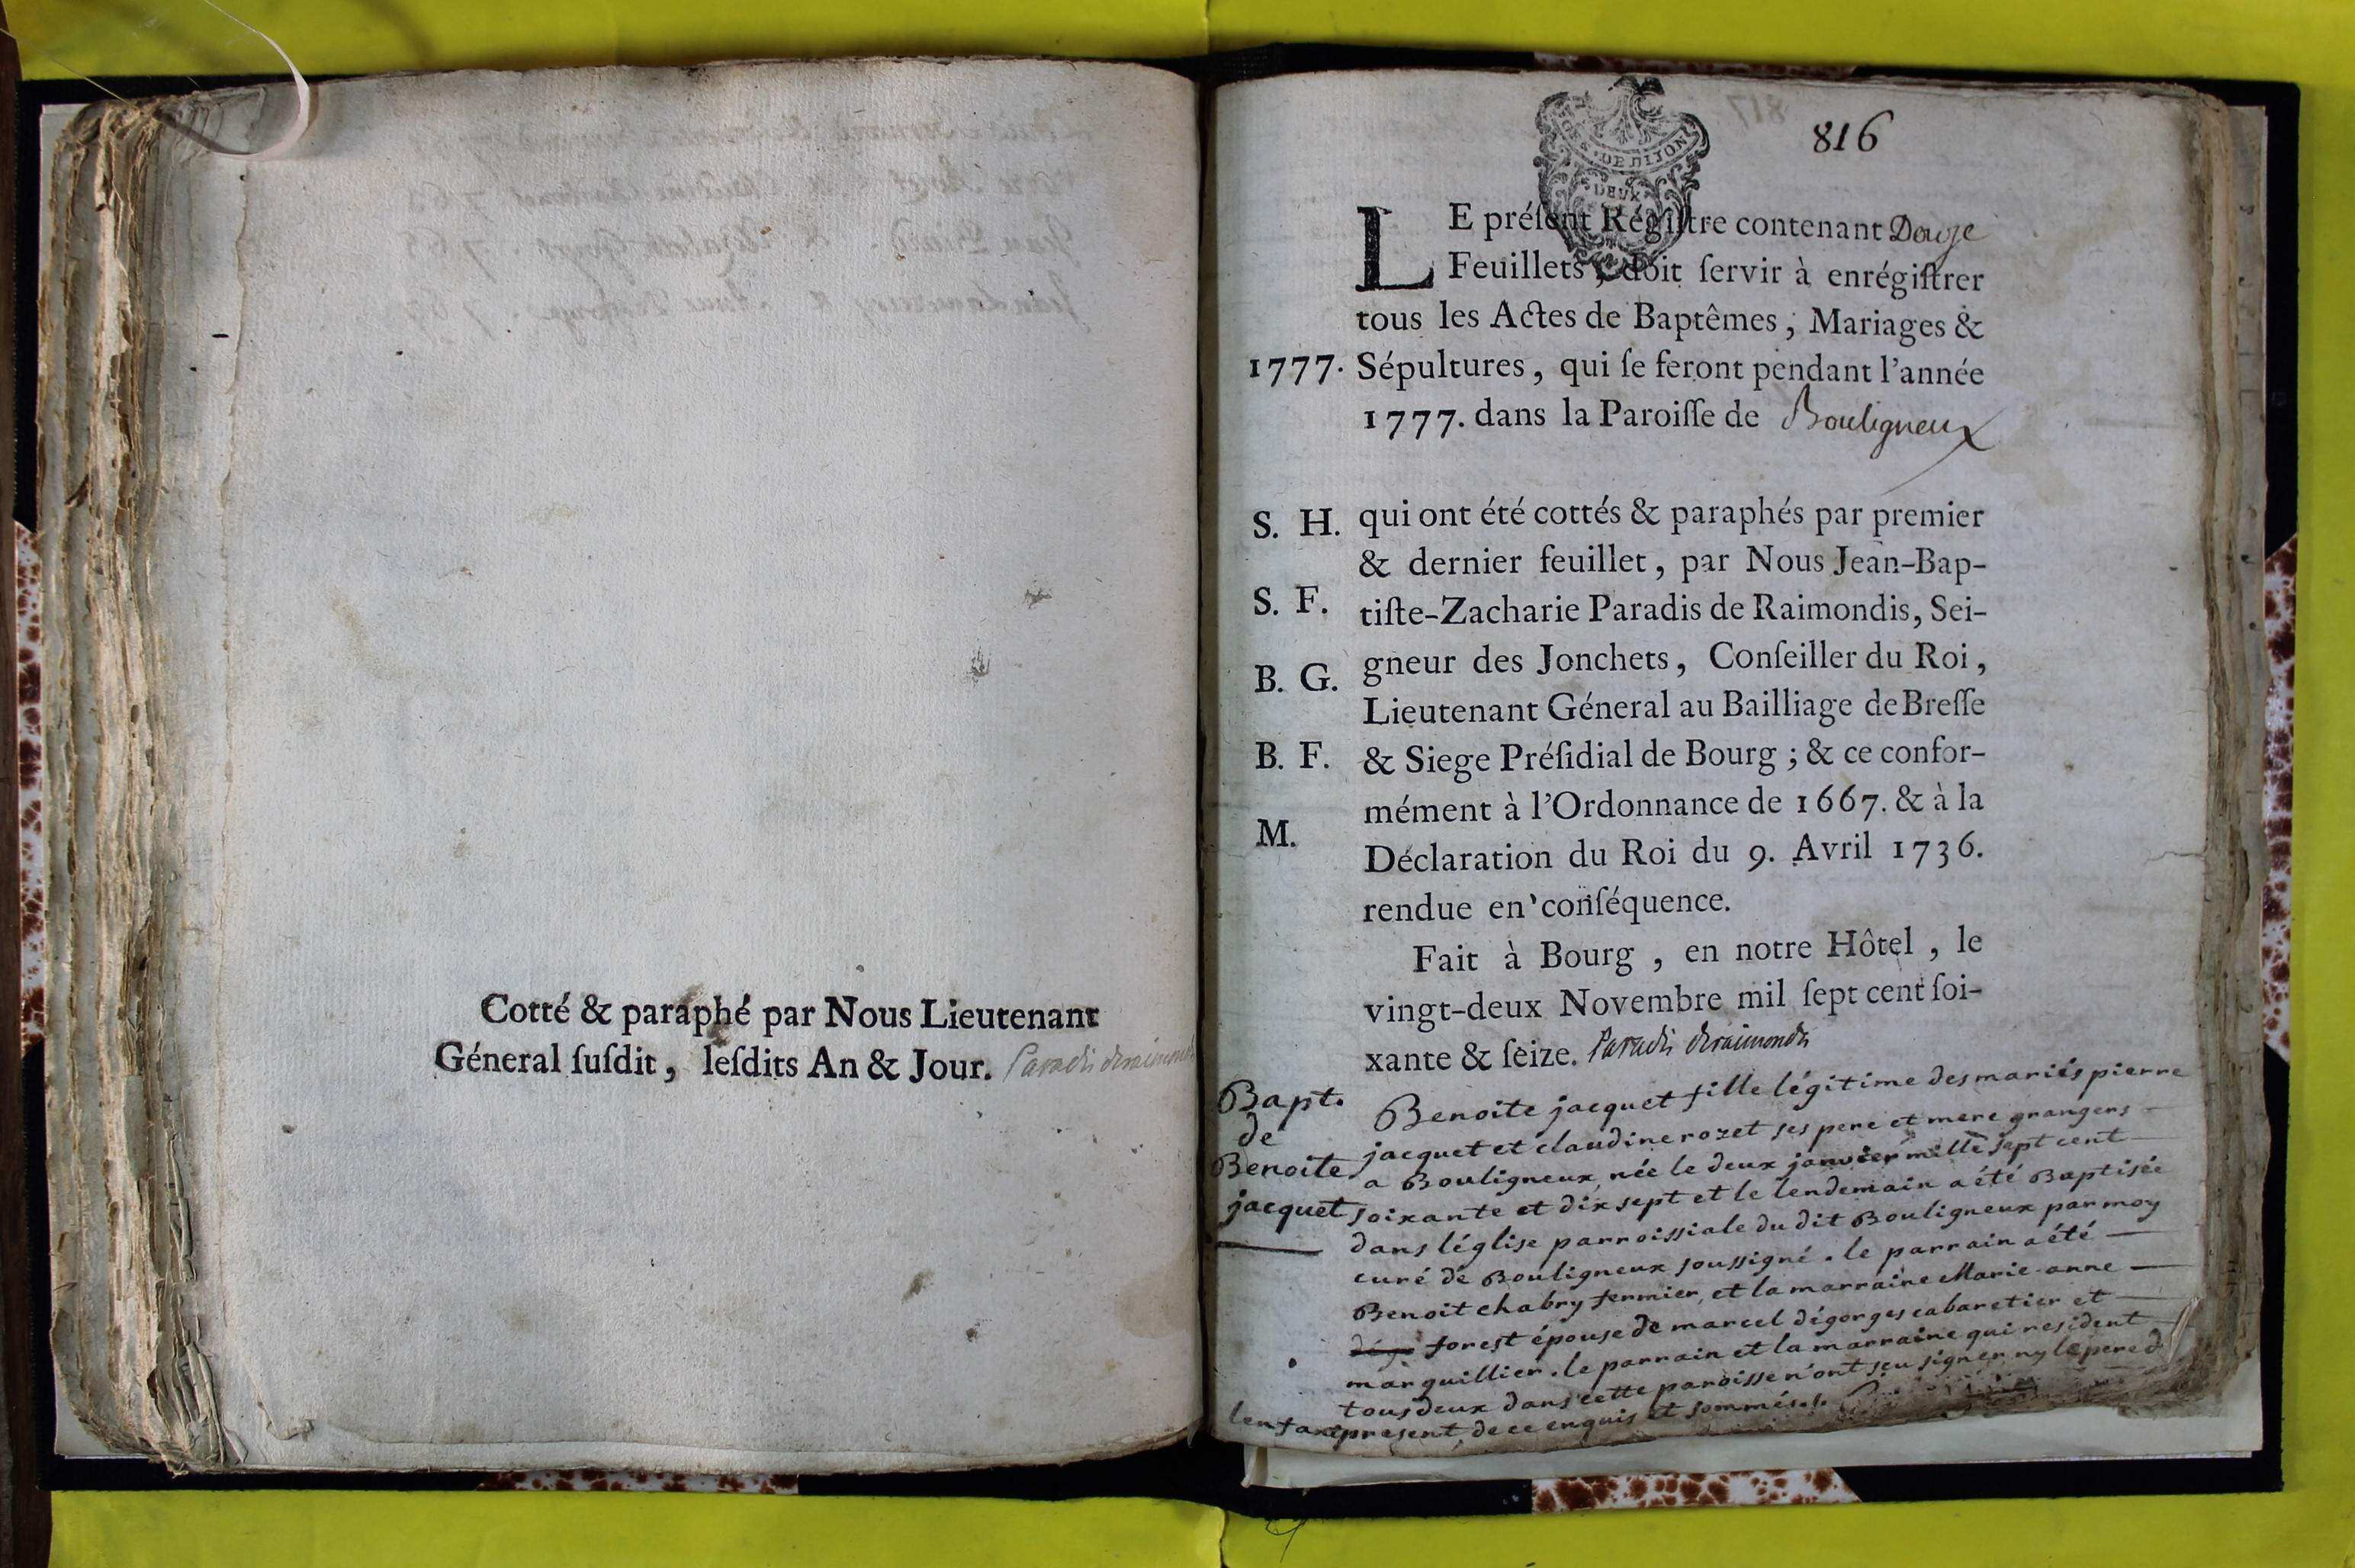 Cotté & paraphé par Nous Lieutenant
Géneral ſuſdit, leſdits An & Jour. Paradis deraimondis
816
DE DIJON
DEUX
LE préſent Régiſtre contenant Douze
Feuillets, doit ſervir à enrégiſtrer
tous les Actes de Baptêmes, Mariages &
1777. Sépultures, qui ſe feront pendant l'année
1777. dans la Paroiſſe de Bouligneux
S. H. qui ont été cottés & paraphés par premier
& dernier feuillet, par Nous Jean-Bap-
S. F. tiſte-Zacharie Paradis de Raimondis, Sei-
B. G. gneur des Jonchets, Conſeiller du Roi,
Lieutenant Géneral au Bailliage de Breſſe
B. F. & Siege Préſidial de Bourg; & ce confor-
mément à l'Ordonnance de 1667. & à la
M.
Déclaration du Roi du 9. Avril 1736.
rendue en conſéquence.
Fait à Bourg, en notre Hôtel, le
vingt-deux Novembre mil ſept cent ſoi-
xante & ſeize. Paradis deraimondis
Bapt.
de
Benoite
jacquet
Benoite jacquet fille légitime des mariés pierre
jacquet et claudine rozet ses pere et mere grangers
a Bouligneux, née le deux janvier mille sept cent
soixante et dix sept et le lendemain a été Baptisée
dans léglise parroissiale du dit Bouligneux par moy
curé de Bouligneux soussigné. le parrain a été
Benoit chabry fermier, et la marraine Marie-anne
forest épouse de marcel dégorges cabaretier et
marguillier. le parrain et la marraine qui resident
tous deux dans cette paroisse n'ont seu signer ny le pere d
lenfant present, de ce enquis et sommés.